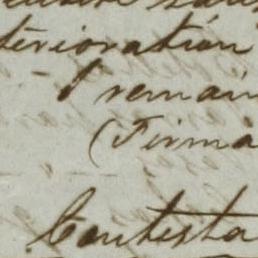 terioration
I remain
(Firma
Contesta